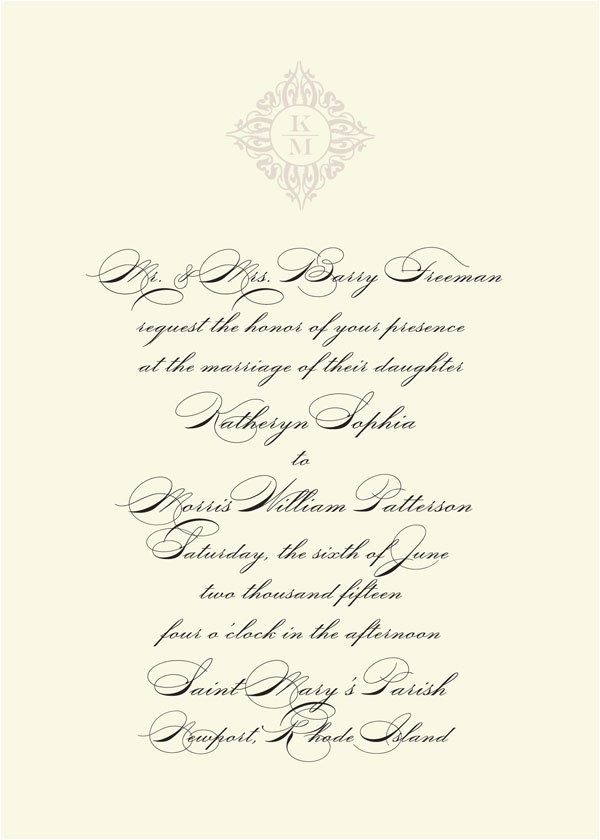 K
M
Mr. & Mrs. Barry Freeman
request the honor of your presence
at the marriage of their daughter
Katheryn Sophia
to
Morris William Patterson
Saturday, the sixth of June
two thousand fifteen
four o'clock in the afternoon
Saint Mary's Parish
Newport, Rhode Island